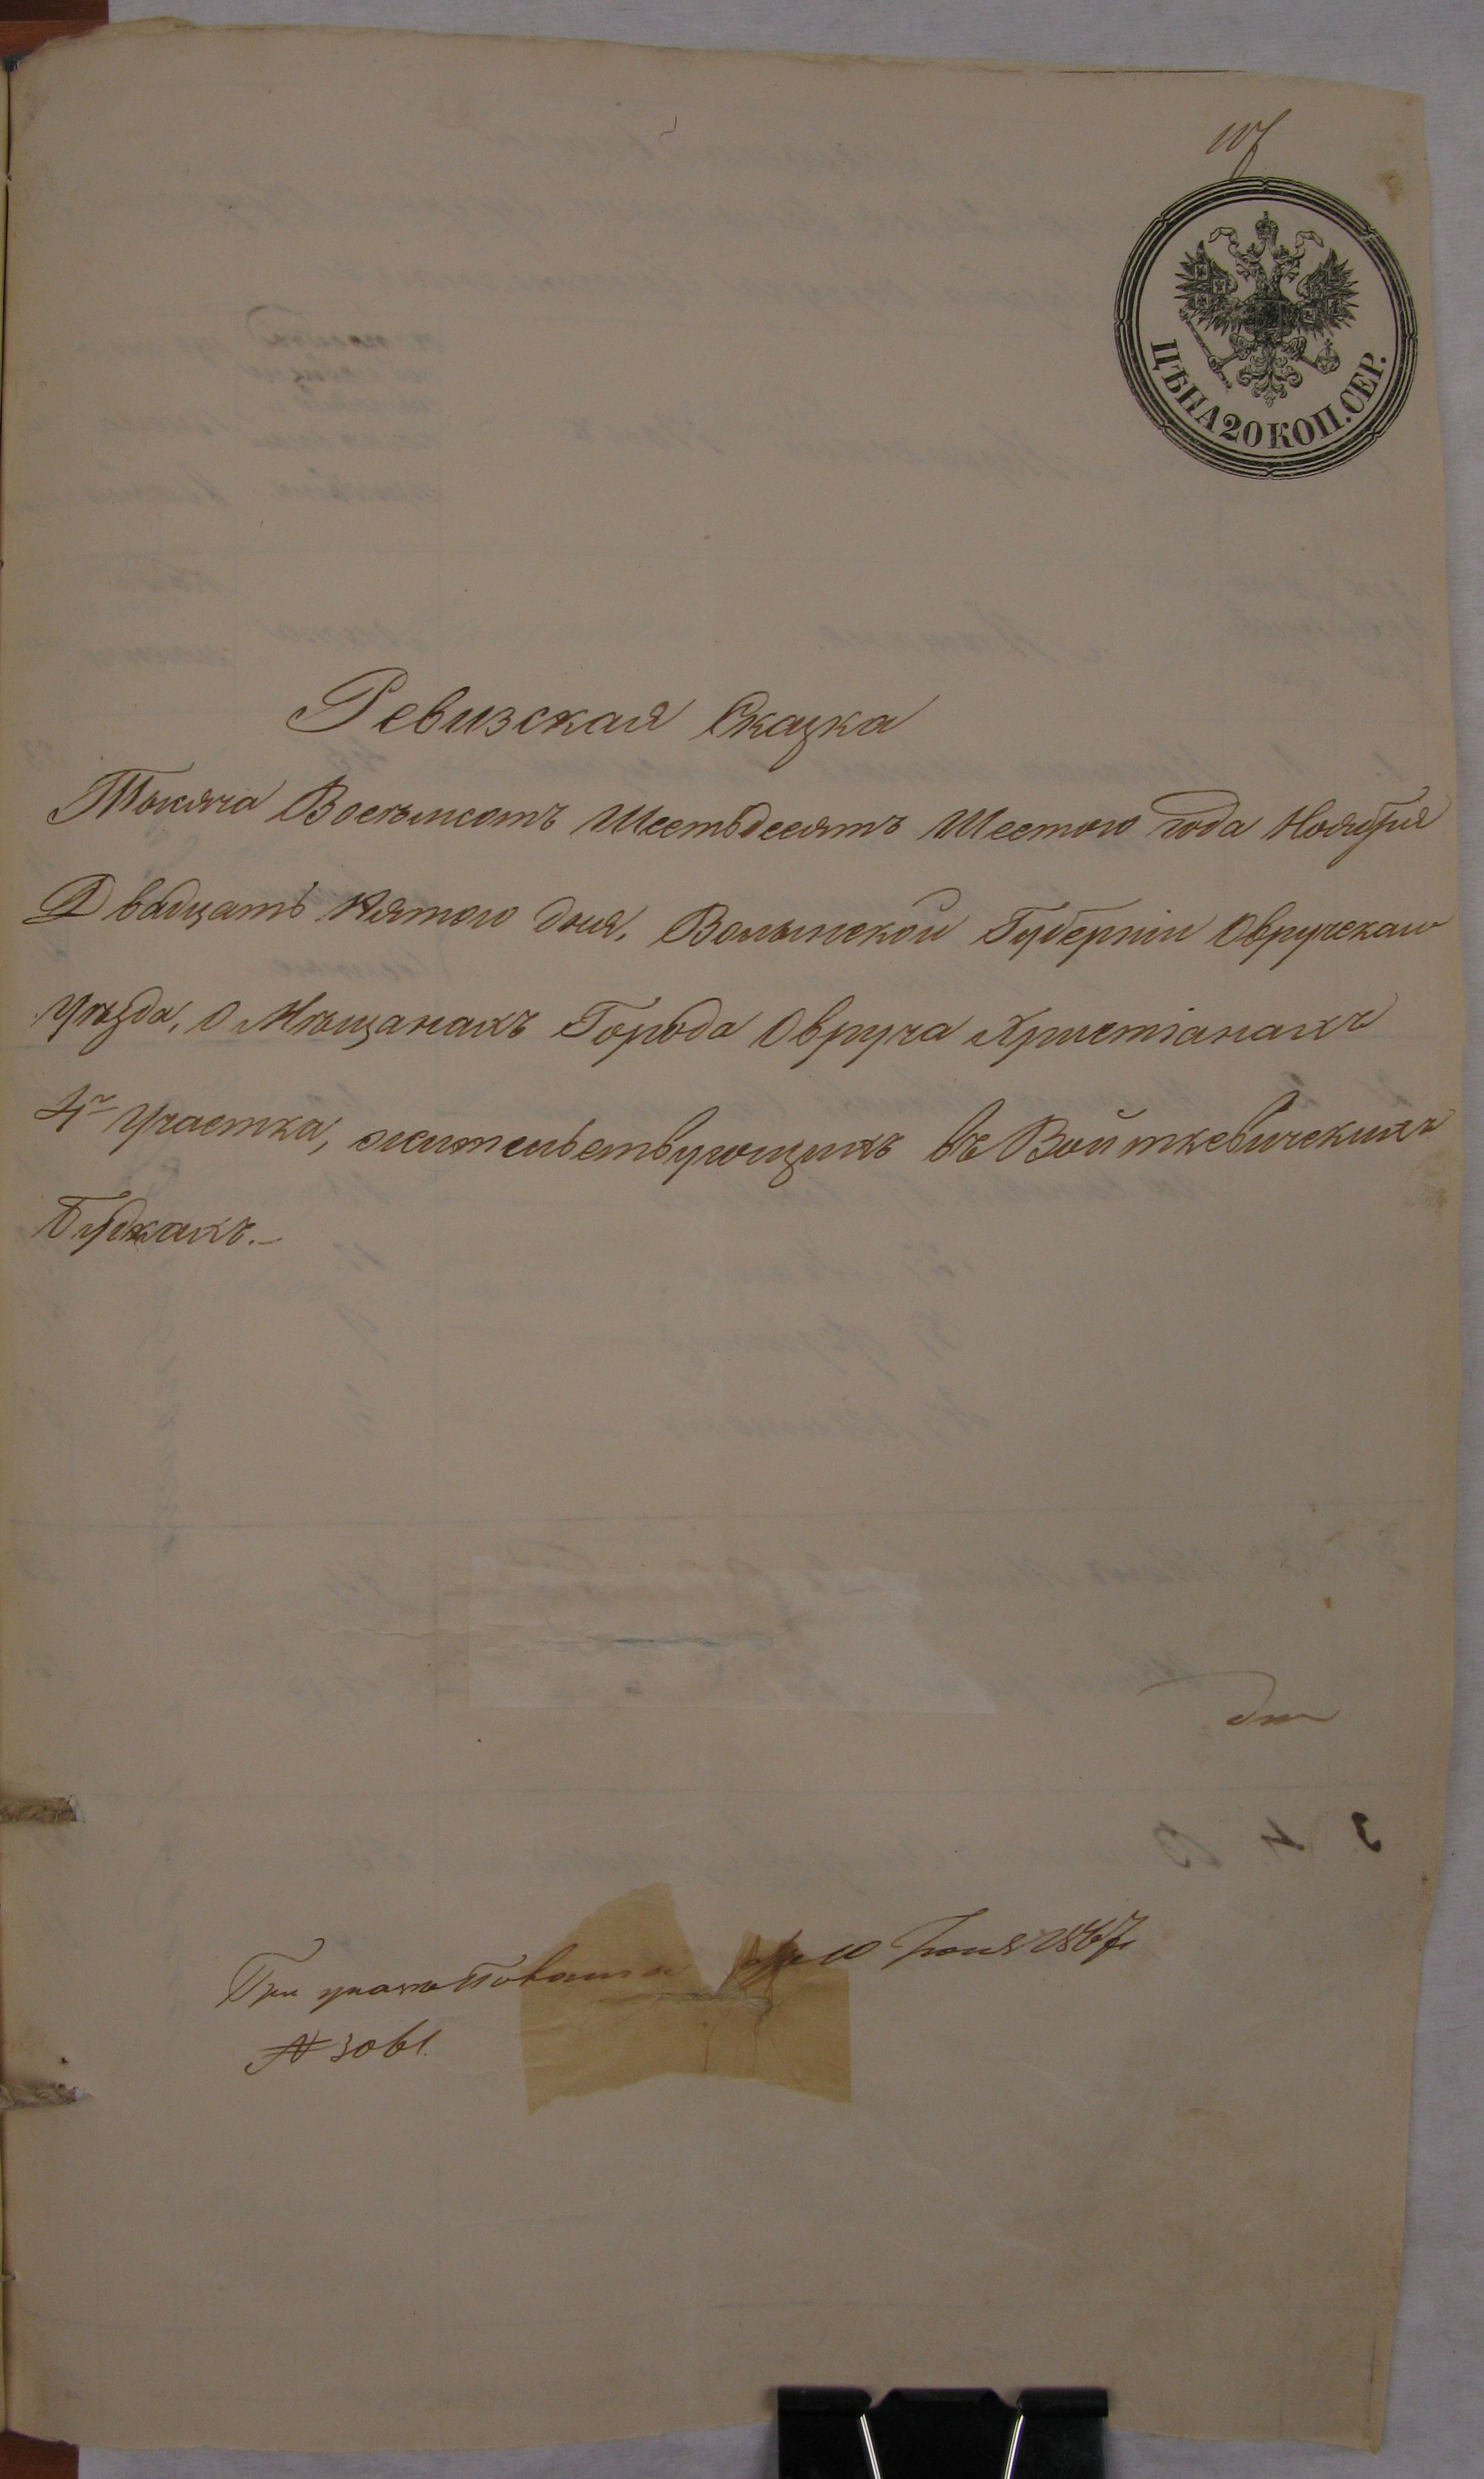 ЦѢНА 20 КОП. СЕР.
Ревизская Сказка
Тысяча Восемьсотъ Шестьдесятъ Шестого года Ноября
Двадцать Пятого дня, Волынской Губерніи Овручскаго
Уѣзда, о Мѣщанахъ Города Овруча Христіанахъ
4го Участка, жительствующихъ въ Войткевичскихъ
Будкахъ.
При 10 Іюня 1867
№ 3061.